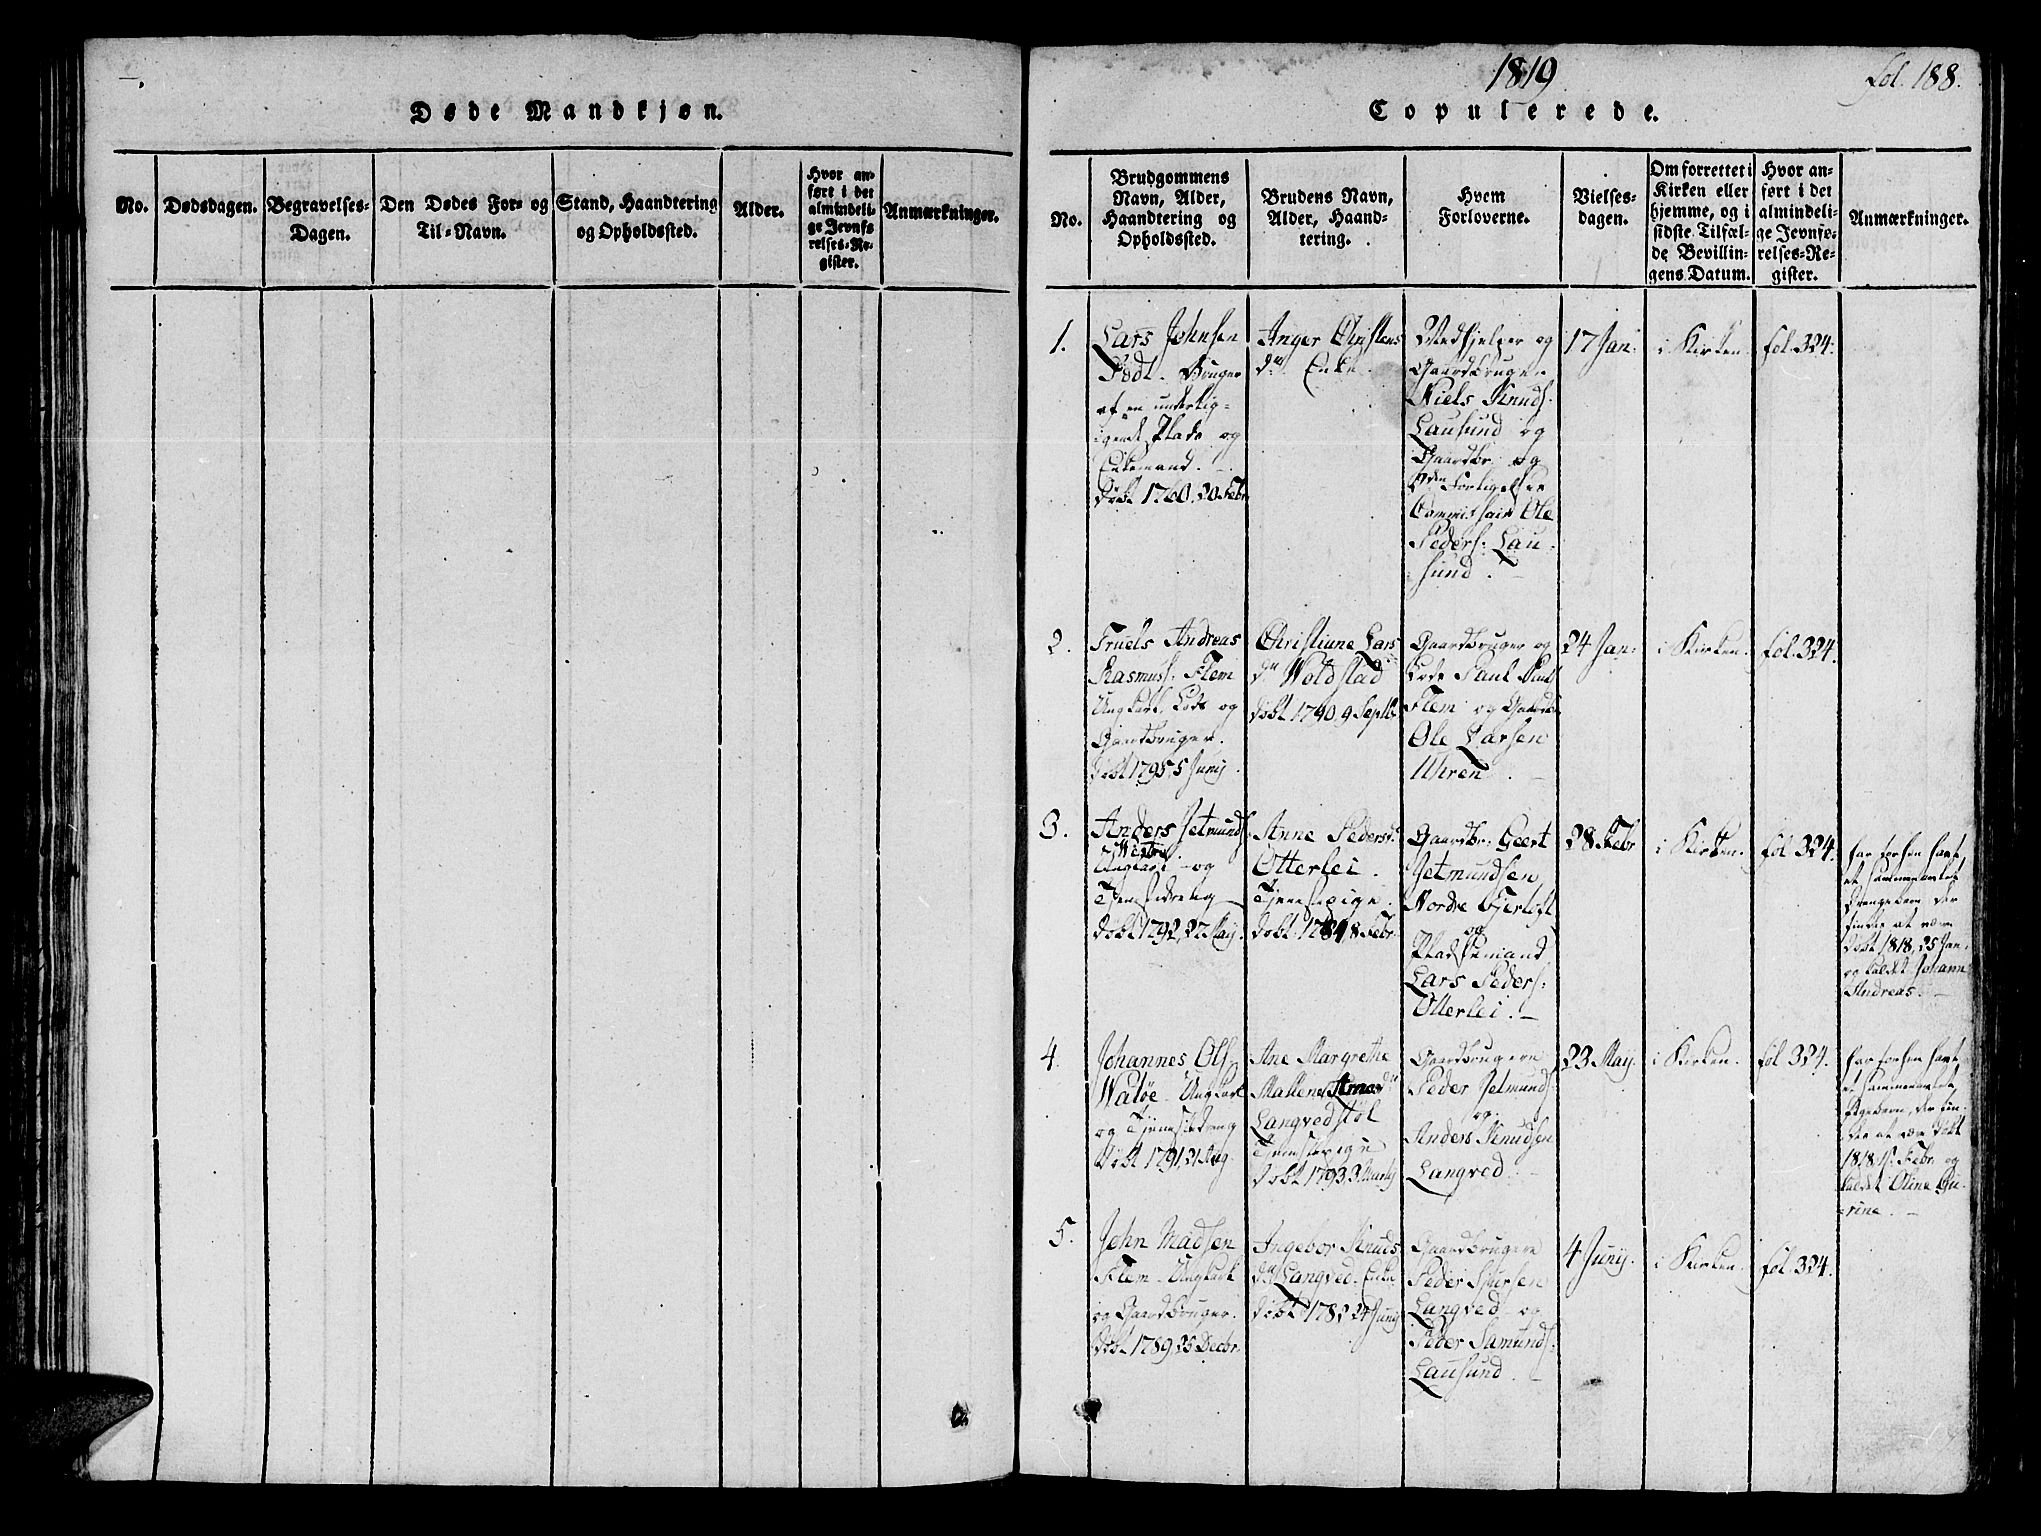 Døde Mandkjøn.
No.
Dødsdagen.
Begravelses-
Dagen.
Den Dødes For- og
Til-Navn.
Stand, Haandtering
og Opholdssted.
Alder.
Hvor an-
ført i det
almindeli-
ge Jevnfø-
relses-Re-
gister.
Anmærkninger.
1819
Fol. 188.
Copulerede.
No.
Brudgommens
Navn, Alder,
Haandtering og
Opholdssted.
Brudens Navn,
Alder, Haand-
tering.
Hvem
Forloverne.
Vielses-
dagen.
Om forrettet i
Kirken eller
hjemme, og i
sidste Tilfæl-
de Bevillin-
gens Datum.
Hvor an-
ført i det
almindeli-
ge Jevnfø-
relses-Re-
gister.
Anmærkninger.
1.
Lars Johnsen
Bruger
af en underlig-
gende Plads og
Enkemand.
Døbt 1760. 20 Febr
Anger Christens
dr Enke.
Medhjelper og
Gaardbruger
Niels Knuds.
Lausund og
Gaardbr. og
Forligelses
Commissair Ole
Peders. Lau-
sund.
17 Jan:
i Kirken.
fol. 324.
2.
Truels Andreas
Rasmuss. Flem
Ungkarl, Lods og
Gaardbruger.
Døbt 1795 5 Junij.
Christiane Lars
dr Woldstad
Døbt 1790. 9 Septb
Gaardbruger og
Lods Paul
Flem og Gaardbr
Ole Larsen
Uhren.
24 Jan:
i Kirken.
fol. 324.
3.
Anders Jetmunds.
Ungkarl og
Tjenestdreng
Døbt 1792, 27 Maij.
Anne Pedersd.
Otterlei.
Tjenestepige.
Døbt 8 Febr.
Gaardbr. Geert
Jetmundsen
Nordre Gjerløft
og
Pladsemand
Lars Peders:
Otterlei.
28 Febr
i Kirken.
fol 324.
har forhen havt
et sammenavlet
Drengebarn der
findes at være
Døbt 1818, 25 Jan.
og kaldet Johann
Andreas.
4.
Johannes Ols.
Waløe Ungkarl
og Tjenestedreng
Døbt 1791. 21 Aug.
Ane Margrethe
Mallene
Langvedstøl
Tjenstepige
Døbt 1793, 3
Gaardbrugere
Peder Jetmunds.
og
Anders Knudsen
Langved.
23 Maij.
i Kirken.
fol 324.
har forhen havt
et sammenavlet
Pigebarn, der fin-
des at være døbt
1818. Febr. og
kaldet Oline Gu-
rine.
5.
John Madsen
Flem Ungkarl
og Gaardbruger.
Døbt 1789, 25 Decbr.
Ingebor Knuds
dr Langved. Enke
Døbt 24 Junij
Gaardbrugere
Peder Syversen
Langved og
Peder Samunds.
Lausund.
4 Junij.
i Kirken.
fol. 324.